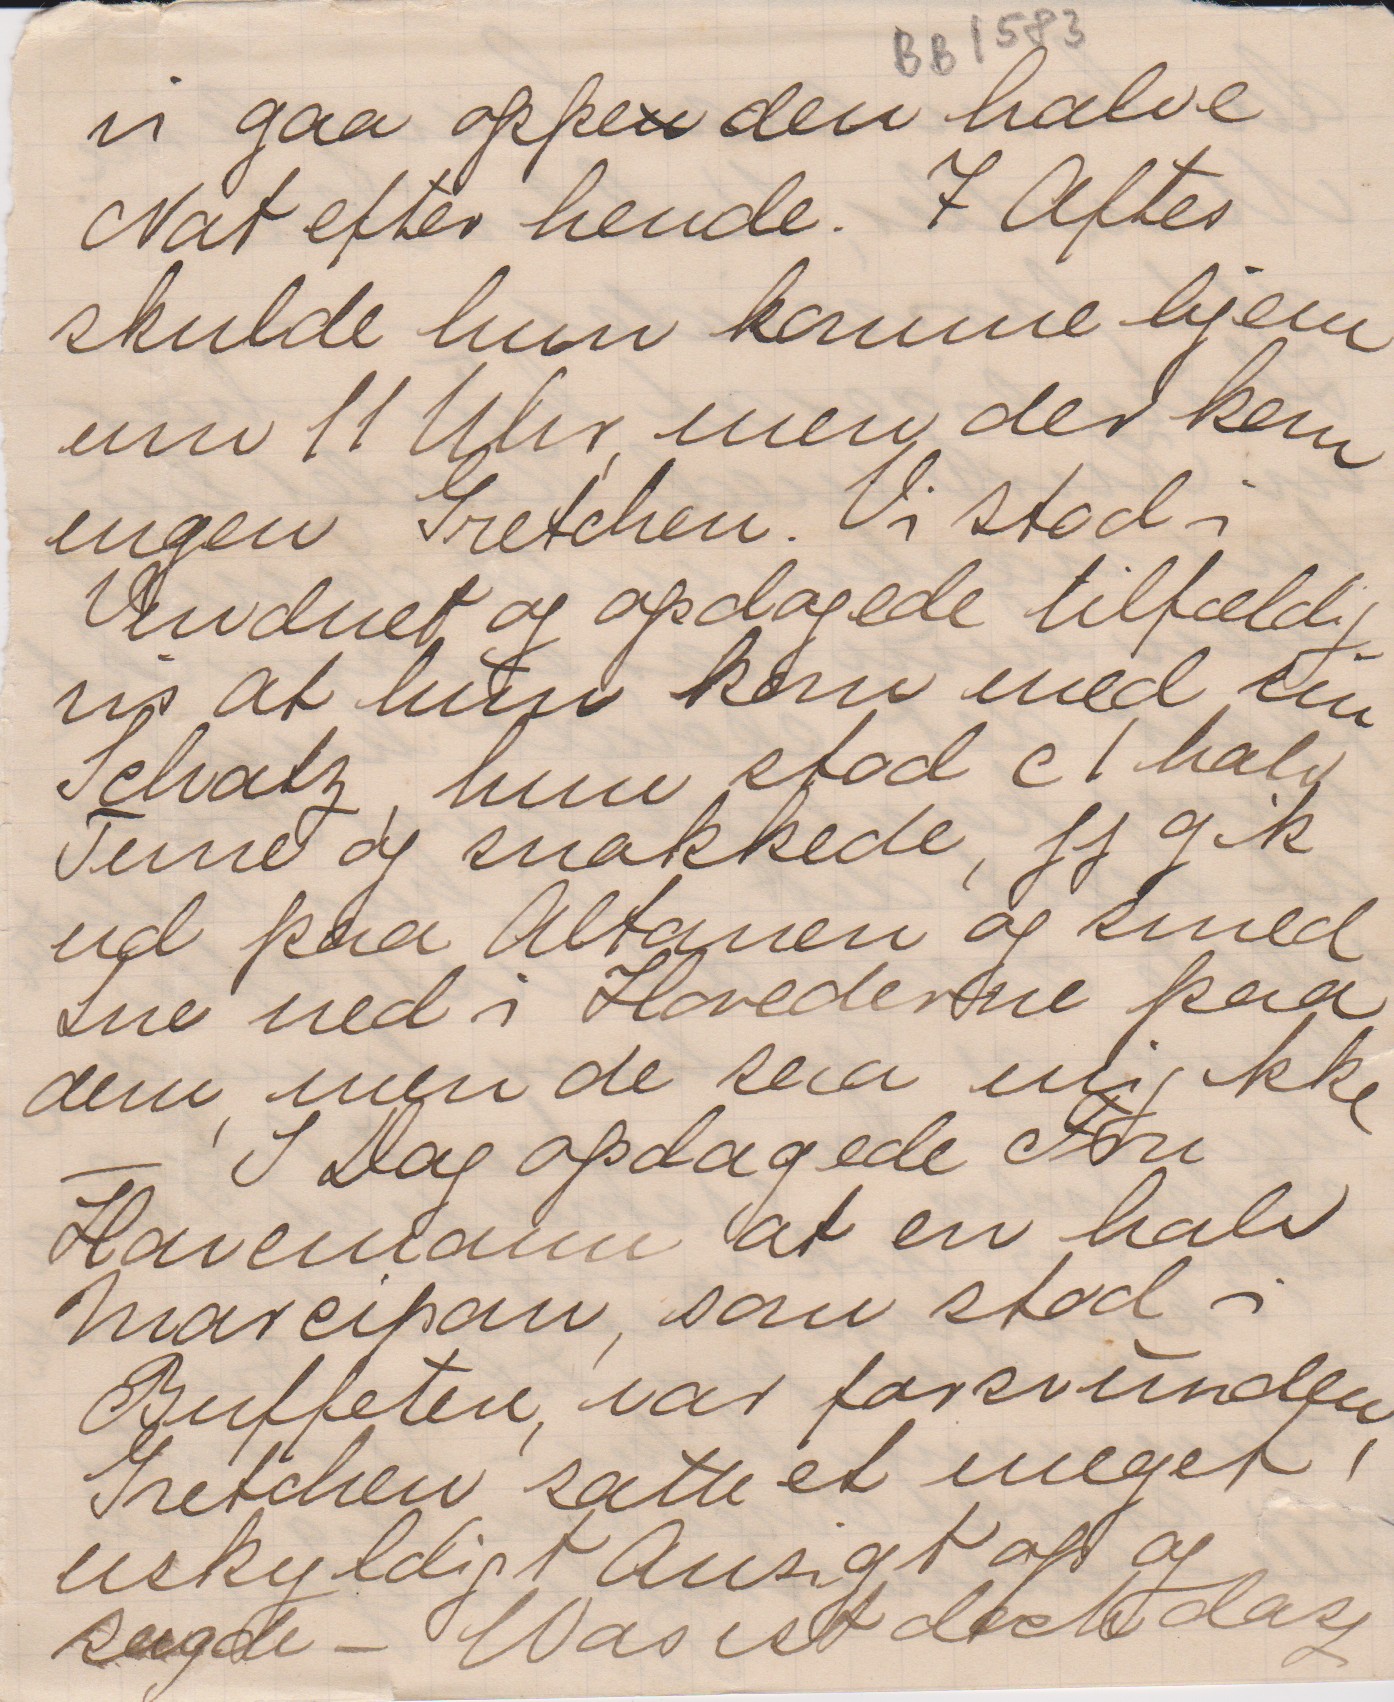 BB1583
vi gaa oppe den halve
Nat efter hende. I Aftes
skulde hun komme hjem
um 11 Uhr, men der kom
ingen Gretchen. Vi stod i
Vinduet og opdagede tilfældig
vis at hun kom med ein
Schatz, hun stod c 1 halv
Time og snakkede, jeg gik
ud paa Altanen og smed
Sne ned i Hovederne paa
dem, men de saa mig ikke
— I Dag opdagede Fru
Havemann at en halv
Marcipan, som stod i
Buffeten, var forsvunden,
Gretchen satte et meget
uskyldigt Ansigt op og
sagde — Was ist doch das